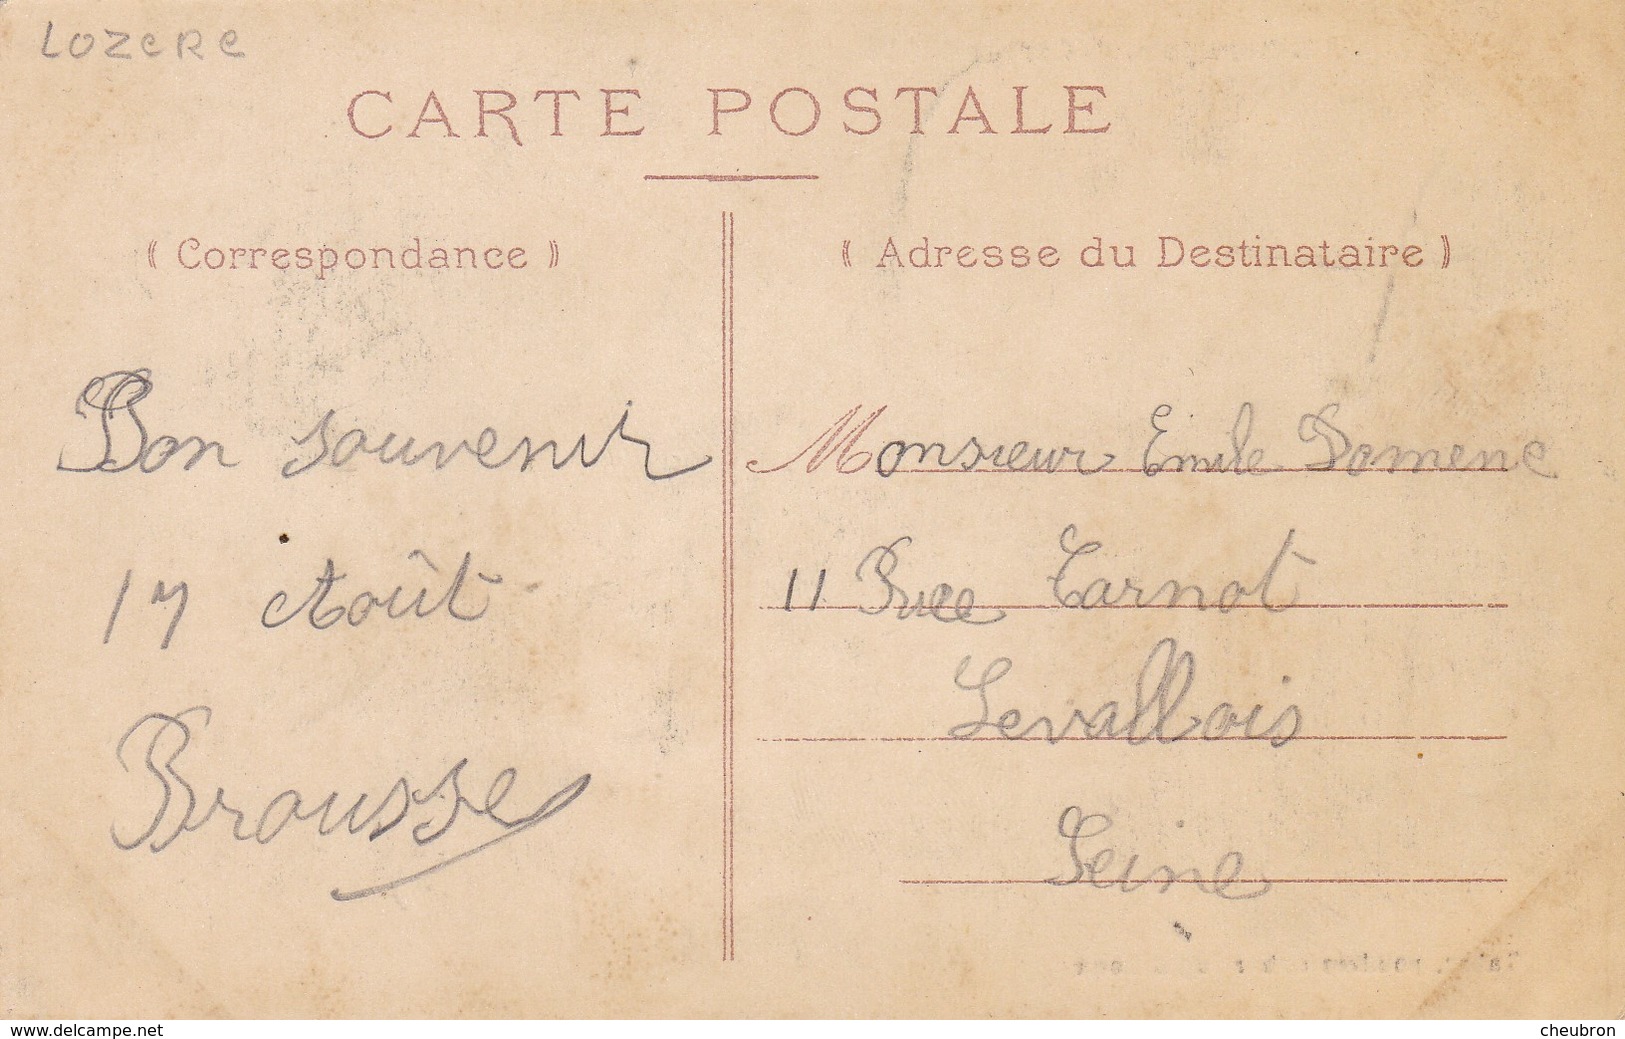 LOZERE
CARTE POSTALE
⟪ Correspondance ⟫
Bon souvenir
17 Août
Brousse
⟪ Adresse du Destinataire ⟫
Monsieur Emile Domene
11 Ruee Carnot
Levallois
Seine
www.delcampe.net
cheubron